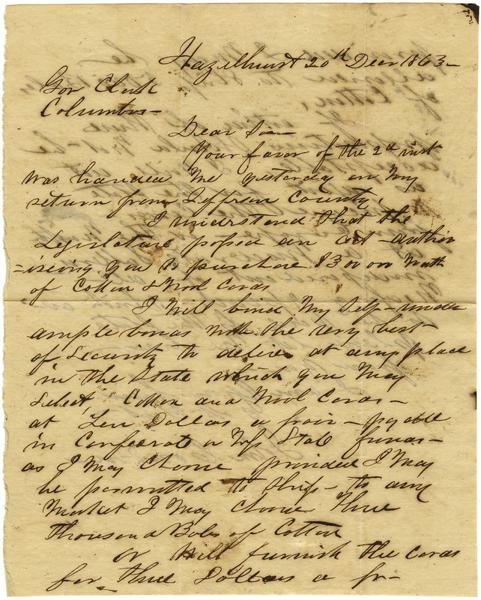 Hazelhurst 20th Decr 1863-
Gov Clark
Columbus-
Dear Sir
Your favor of the 2d inst
was handed me yesterday on my
return from Jefferson County
I understand that the
Legislature passed an act-author
=ising you to purchase worth
of Cotton & Wool Cards
I will bind my self-under
ample bonds with the very best
of Security to deliver at any place
in the State which you may
Select Cotton and Wool Cards-
at Ten Dollars a pair-payable
in Confederate or State funds-
as I may choose provided I may
be permitted to ship-to any
market I may choose three
thousand Bales of Cotton
or will furnish the cards
for three Dollars a pr-